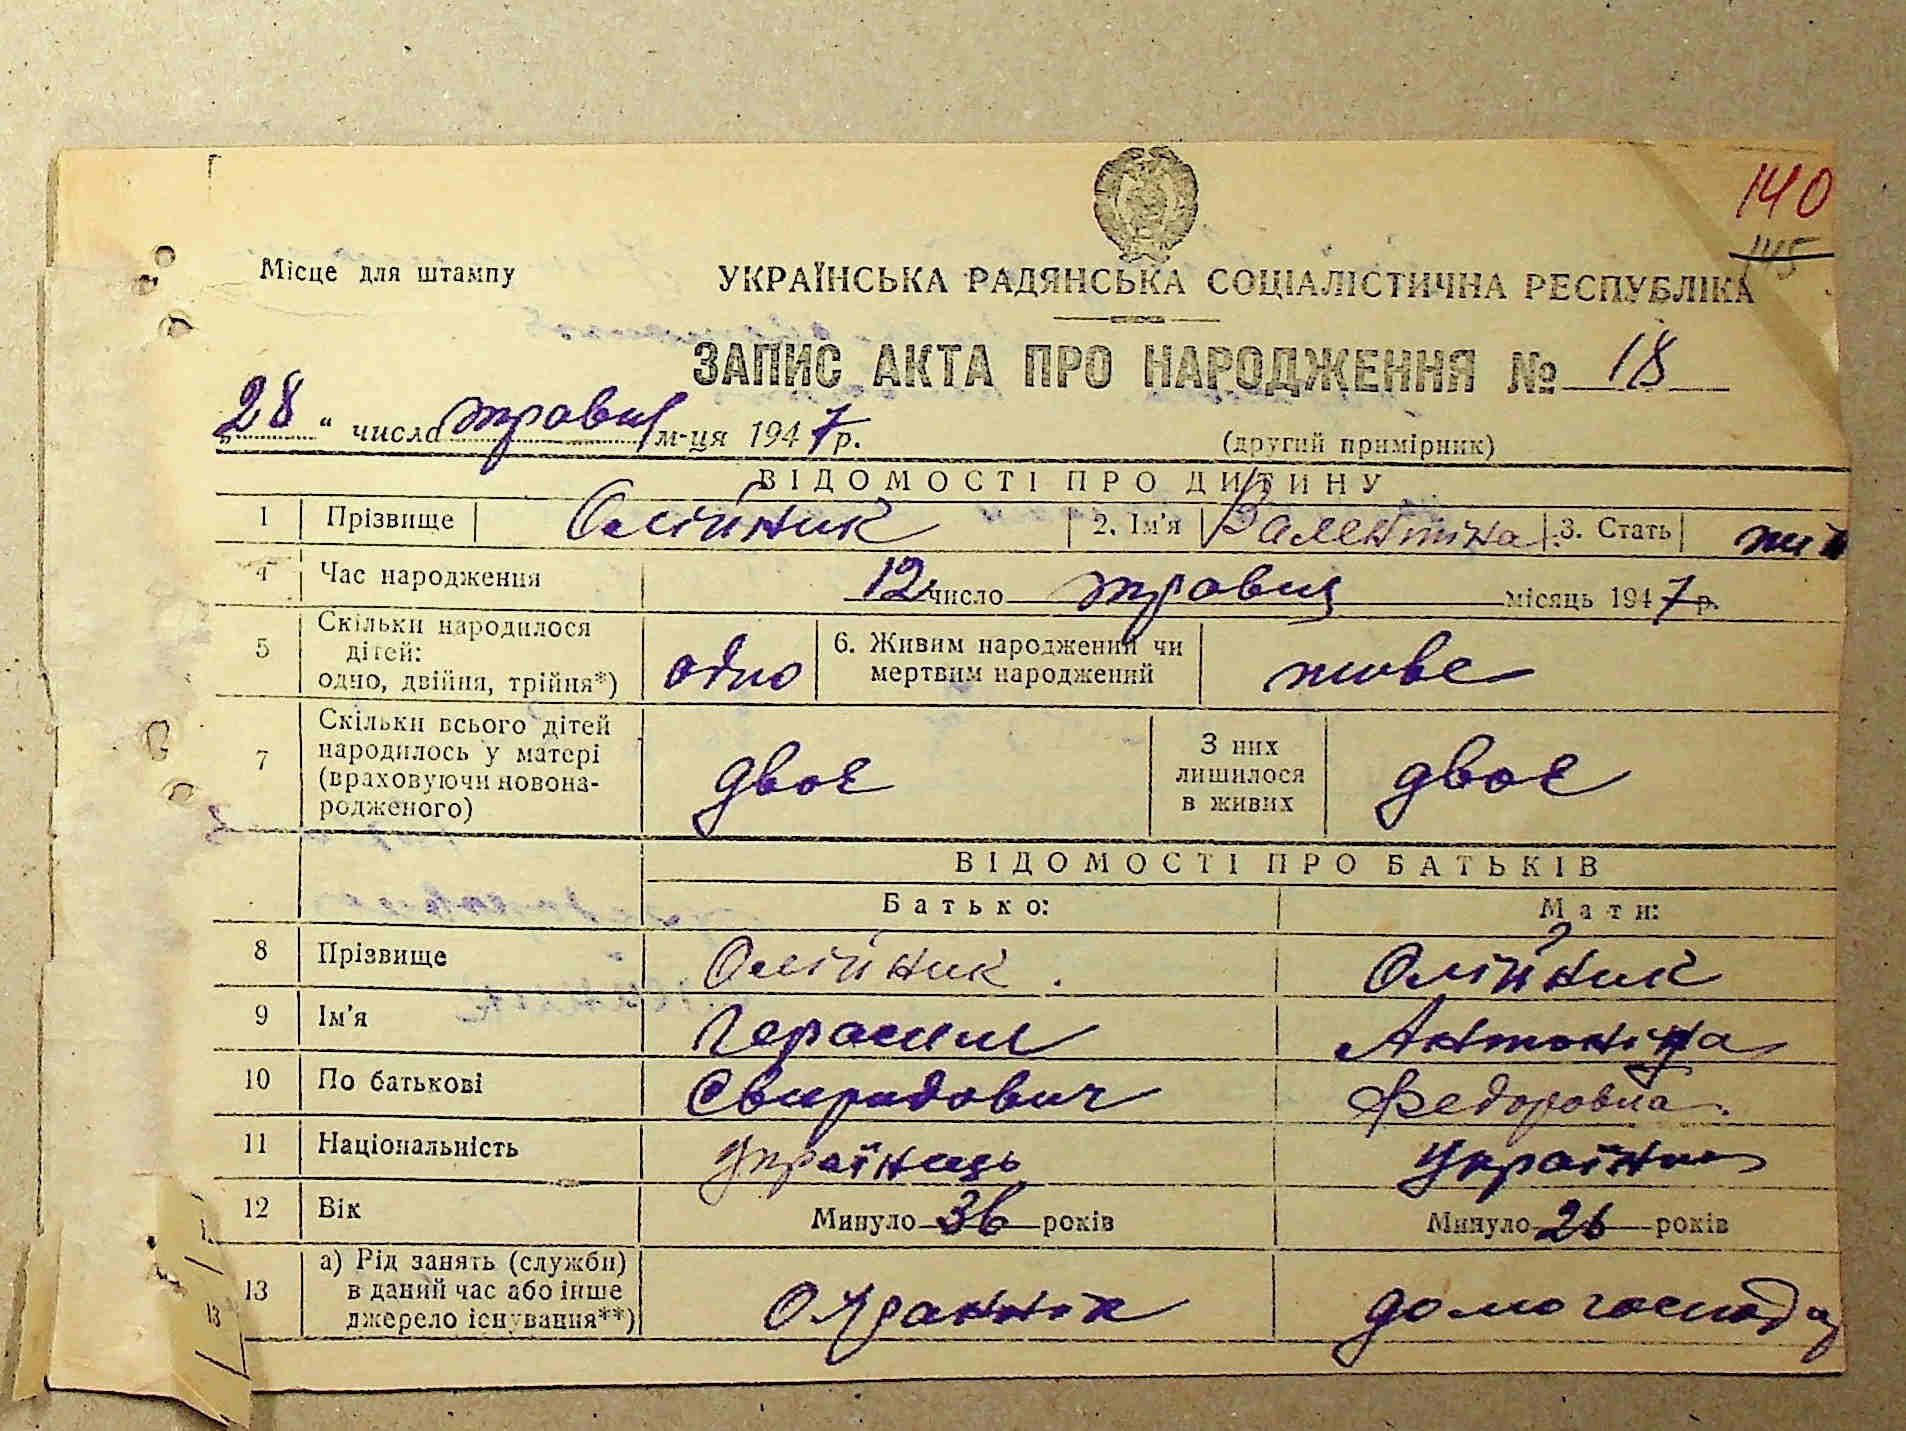 140
145
Місце для штампу
УКРАЇНСЬКА РАДЯНСЬКА СОЦІАЛІСТИЧНА РЕСПУБЛІКА
ЗАПИС АКТА ПРО НАРОДЖЕННЯ № 18
„28“ числа травня м-ця 1947 р.
(другий примірник)
ВІДОМОСТІ ПРО ДИТИНУ
1 Прізвище Олійник 2. Ім'я Валентіна 3. Стать
4 Час народження 12 число травня місяць 1947 р.
5 Скільки народилося дітей: одно, двійня, трійня*) одно 6. Живим народжений чи мертвим народжений живе
7 Скільки всього дітей народилось у матері (враховуючи новонародженого) двоє З них лишилося в живих двоє
ВІДОМОСТІ ПРО БАТЬКІВ
Батько: Мати:
8 Прізвище Олійник Олійник
9 Ім'я Герасим Антоніна
10 По батькові Свиридович Федоровна
11 Національність Українець Українка
12 Вік Минуло 36 років Минуло 26 років
13 а) Рід занять (служби) в даний час або інше джерело існування**) Охранник домогосподар
13